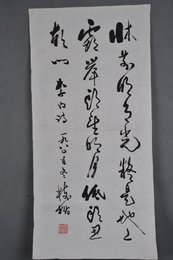 床前明月光疑是地上
霜举头望明月低头思
故乡 李白诗 一九八